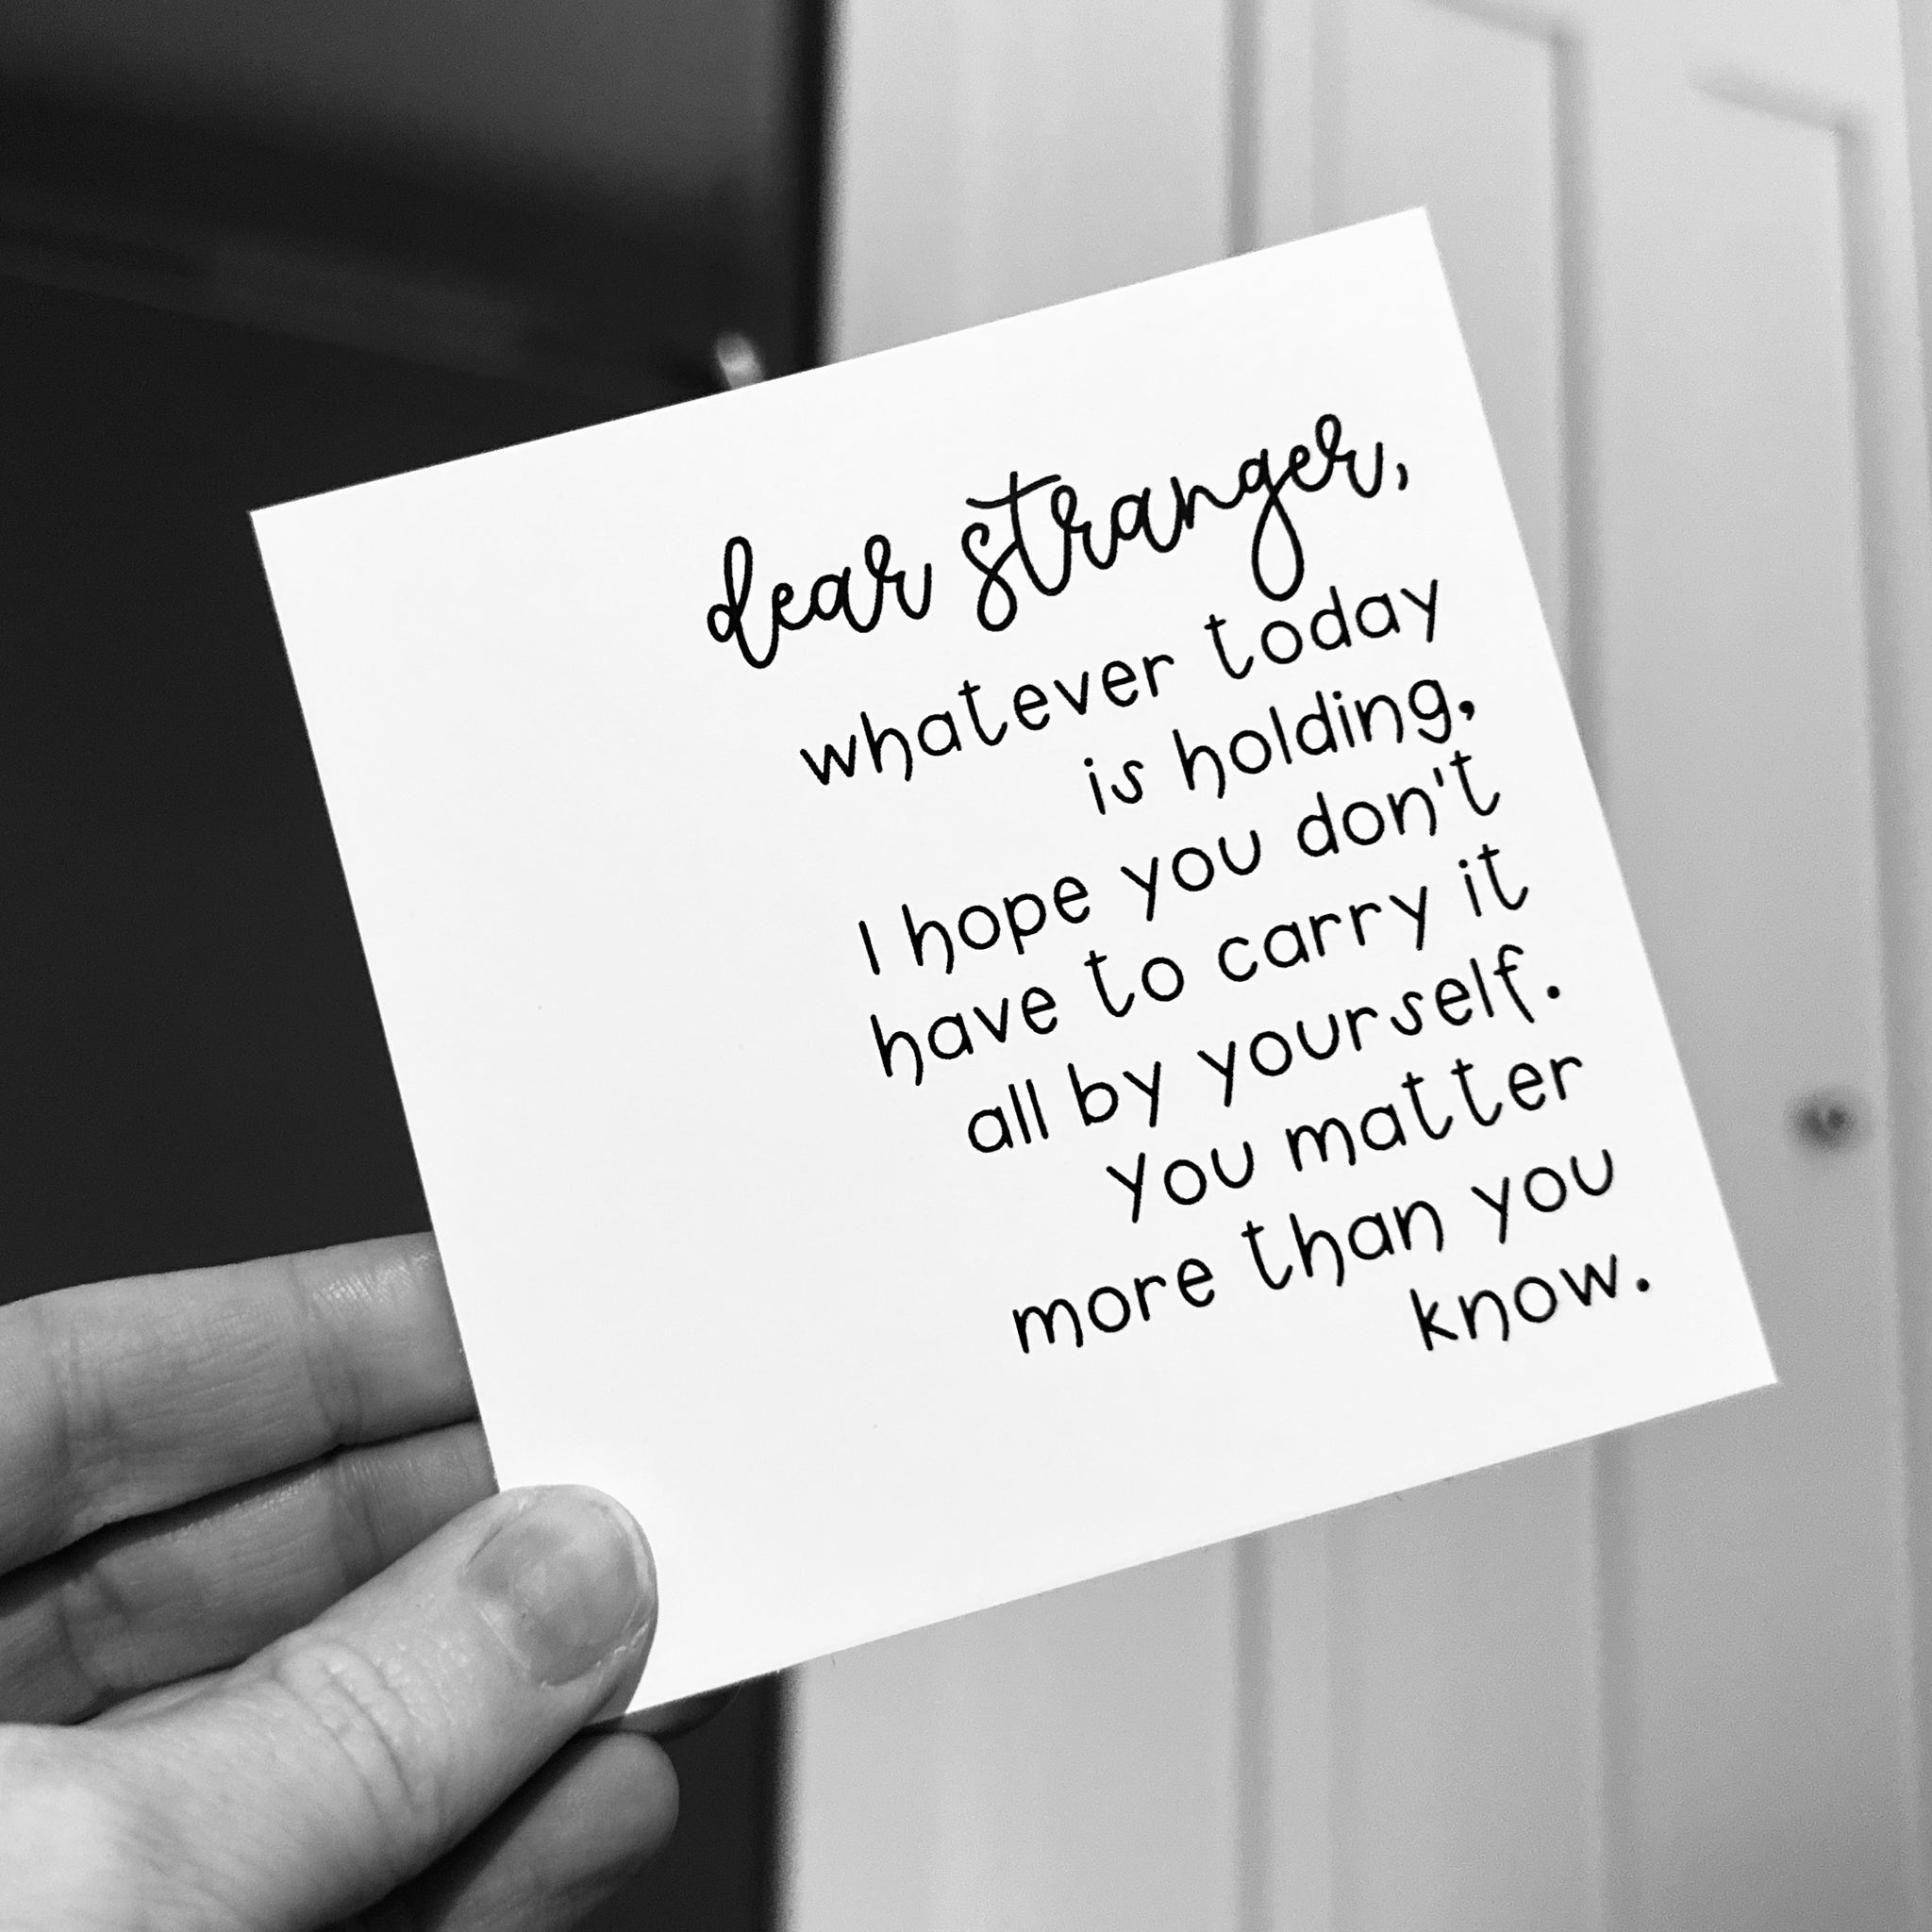 dear stranger,
whatever today
is holding,
I hope you don't
have to carry it
all by yourself.
you matter
more than you
know.